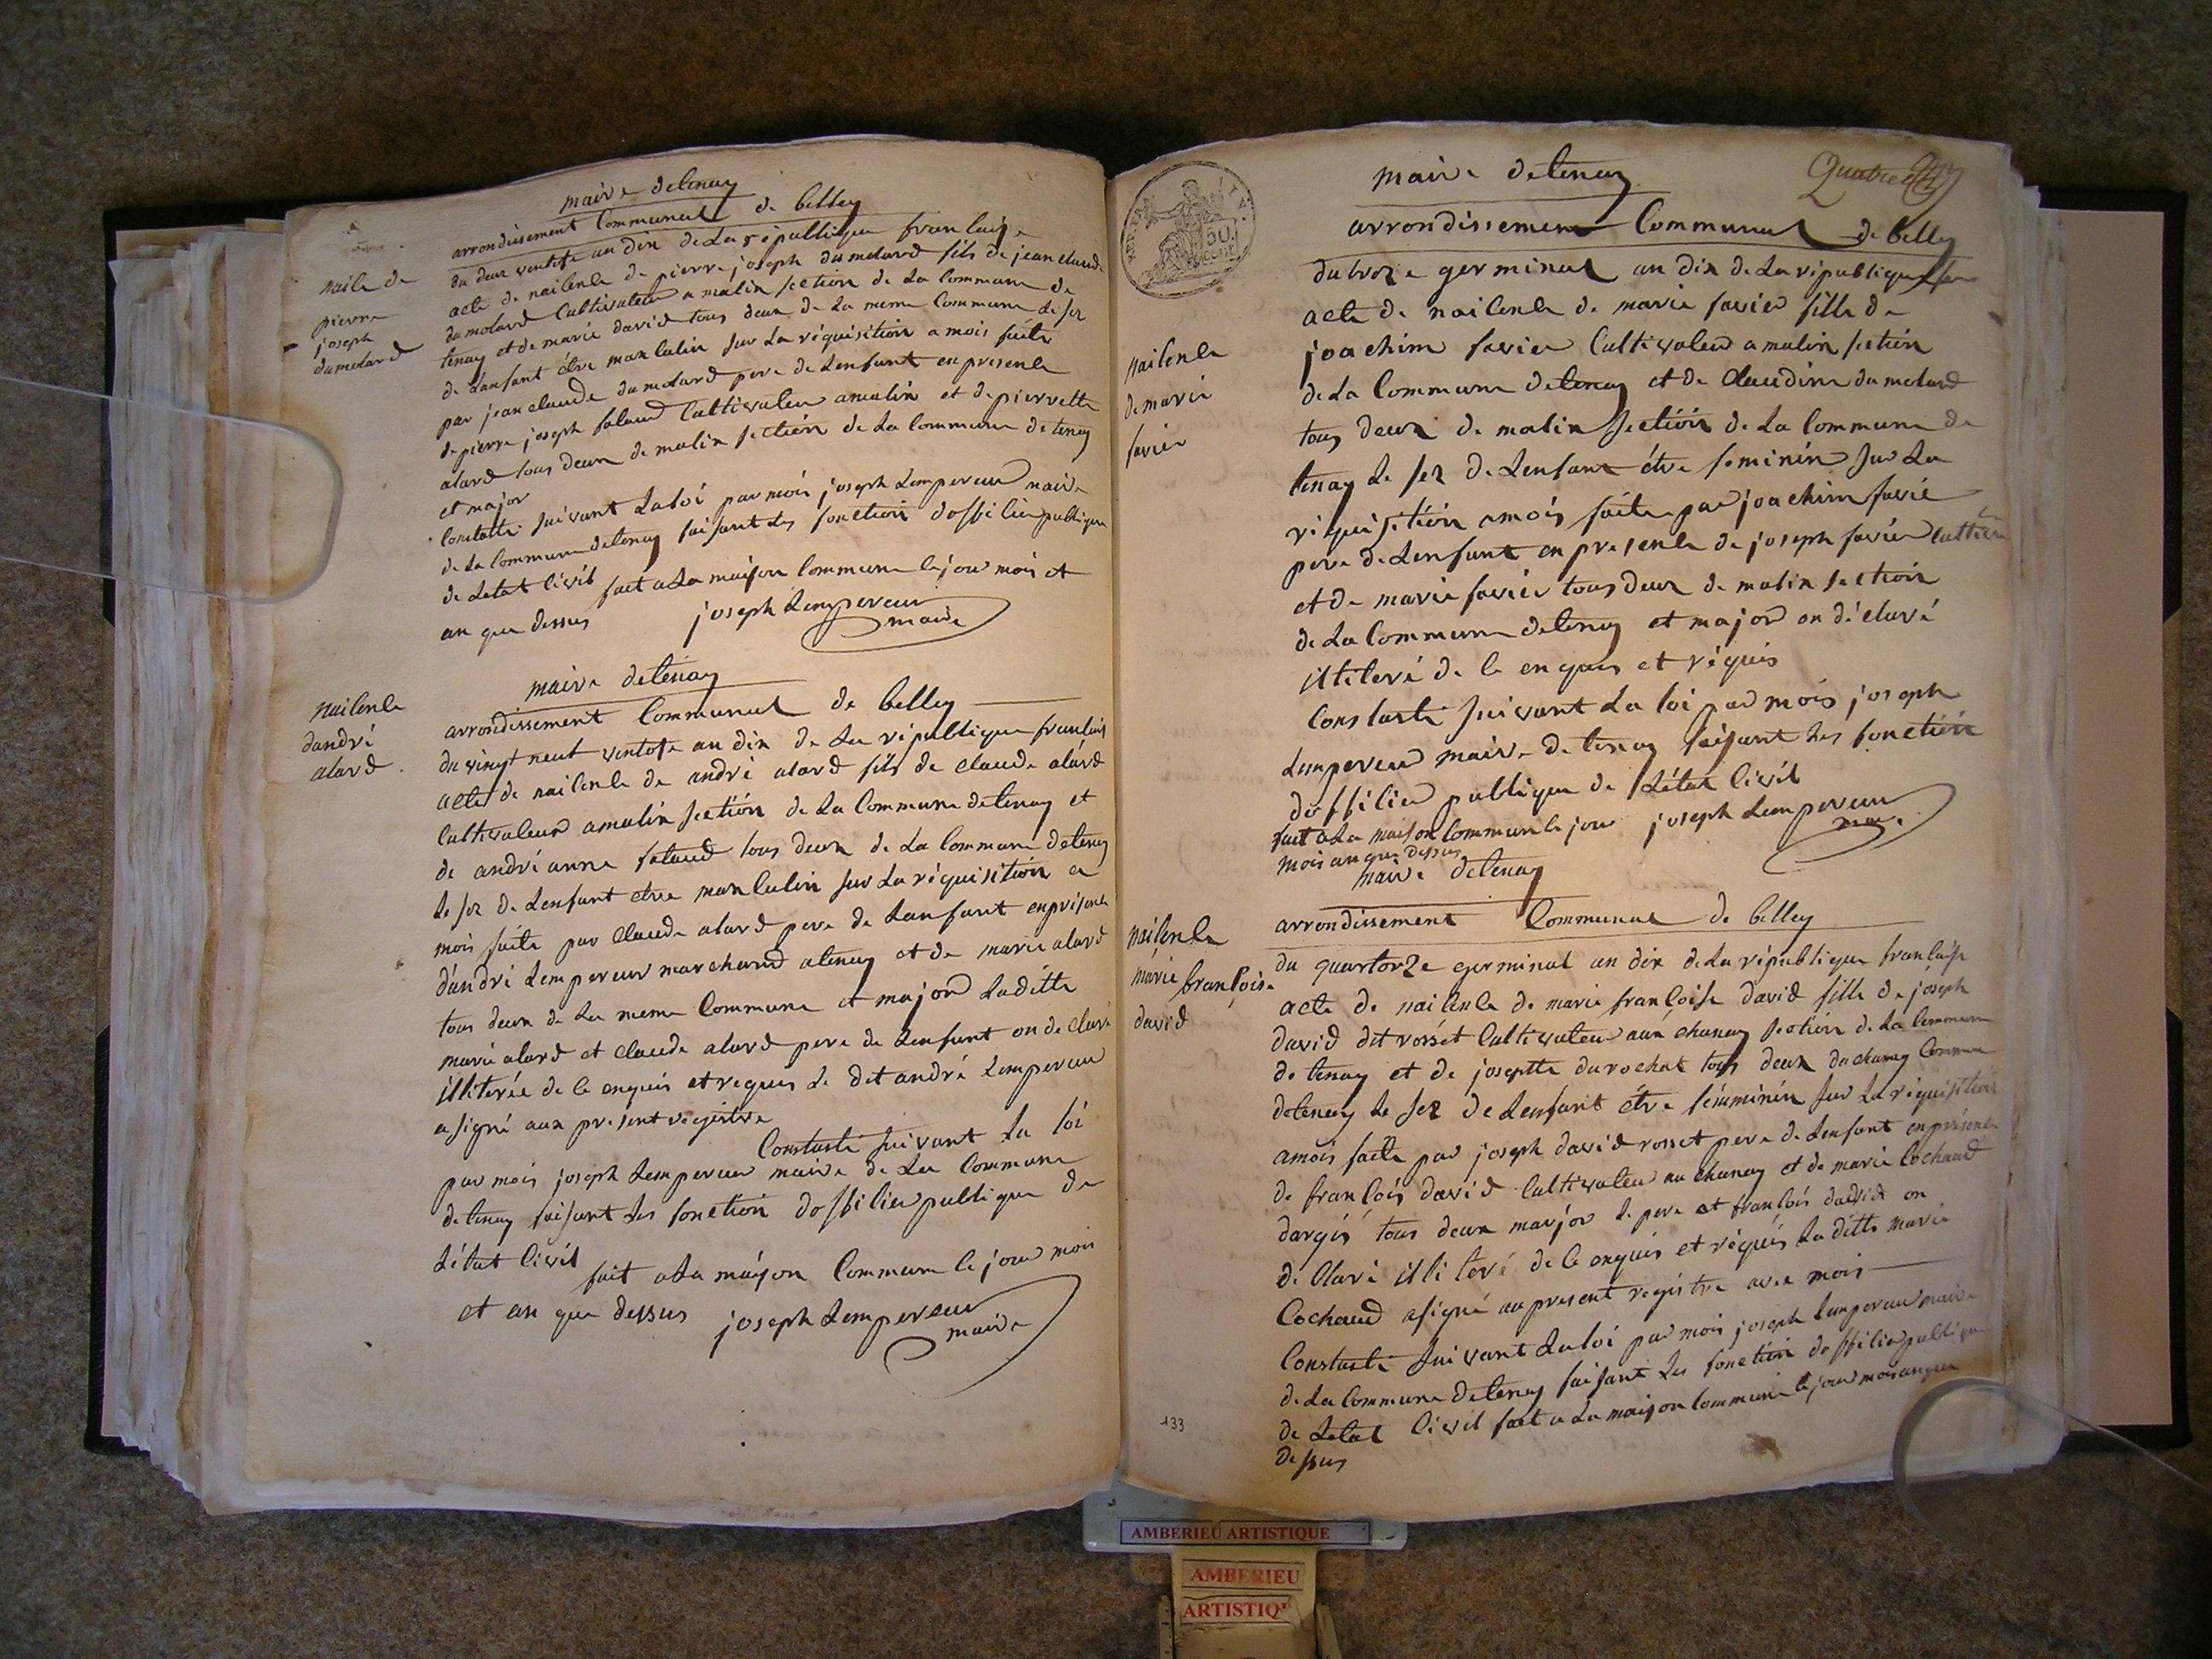 maire detenay
arrondissement Communal de belley
du deux ventose an dix de La république francaise
naile de
pierre
joseph
dumolard
acte de naisence de pierre joseph dumolard fils de jean claude
dumolard Cultivateur a malix section de La Commune de
tenay et de marie david tous deux de La meme Commune Le sex
de Lanfant être masculin sur La réquisition a mois faite
par jean claude dumolard pere de Lenfant en presence
de pierre joseph salaud Cultivateur amalix et de pierrette
alard tous deux de malix section de La Commune de tenay
et major
Constatté suivant Laloi par mois joseph Lempereur maire
de La Commune detenay faisant Les fonction dofficier publique
de Letat Civil fait a La maison Commune le jour mois et
an que dessus joseph Lempereur
maire
maire detenay
naisence
dandré
alard
arrondissement Communal de belley
du vingt neuf ventose an dix de La république francaise
acte de naisence de andré alard fils de claude alard
Cultivateur amalix section de La Commune detenay et
de andréanne salaud tous deux de La Commune detenay
Le sex de Lenfant etre masculin sur La réquisition a
mois faite par Claude alard pere de Lanfant enprésence
dandré Lempereur marchand atenay et de marie alard
tous deux de La meme Commune et major Laditte
marie alard et claude alard pere de Lenfant on declaré
illiterée de ce enquis et requis Le dit andré Lempereur
a signé aux présent registre
Constasté suivant La loi
par mois joseph Lempereur maire de La Commune
de tenay faisant Les fonction dofficier publique de
Létat Civil
fait a La maison Commune le jour mois
et an que dessus joseph Lempereur
maire
maire detenay
50
arrondissement Communal de belley
du troze germinal an dix de La république
naisence
de marie
favier
acte de naisence de marie favier fille de
joachim favier Cultivateur a malix section
de La Commune detenay et de Claudine dumolard
tous deux de malix section de La Commune de
tenay Le sex de Lenfant être feminin sur La
réquisition amois faite par joachim favié
pere de Lenfant en presence de joseph favier
et de marie favier tous deux de malix section
de La Commune detenay et major on déclaré
illiteré de ce enquis et réquis
Constasté suivant La loi par mois joseph
Lempereur maire de tenay faisant Les fonction
dofficier publique de Létat Civil
fait a La maison Commune le jour joseph Lempereur
mois an que dessus maire
maire detenay
arrondissement Communal de belley
naisence
marie françoise
david
du quartorze germinal an dix de La république francaise
acte de naisence de marie françoise david fille de joseph
david dit rosset Cultivateur aux chanay section de La Commune
de tenay et de josephte durochat tous deux du chaney Commune
detenay Le sex de Lenfant être féminin sur La réquisition
amois faite par joseph david rosset pere de Lenfant en présence
de françois david Cultivateur au chanay et de marie Cochaud
dargis tous deux marjor Le pere et françois david on
déclaré illiteré de ce enquis et réquis La ditte marie
Cochaud a signé au present registre avec mois
Constasté suivant Laloi par mois joseph Lempereur maire
de La Commune detenay faisant Les fonction dofficier publique
de Létat Civil fait a La maison Commune le jour mois an que
dessus
133
AMBERIEU ARTISTIQUE
AMBERIEU
ARTISTIQ